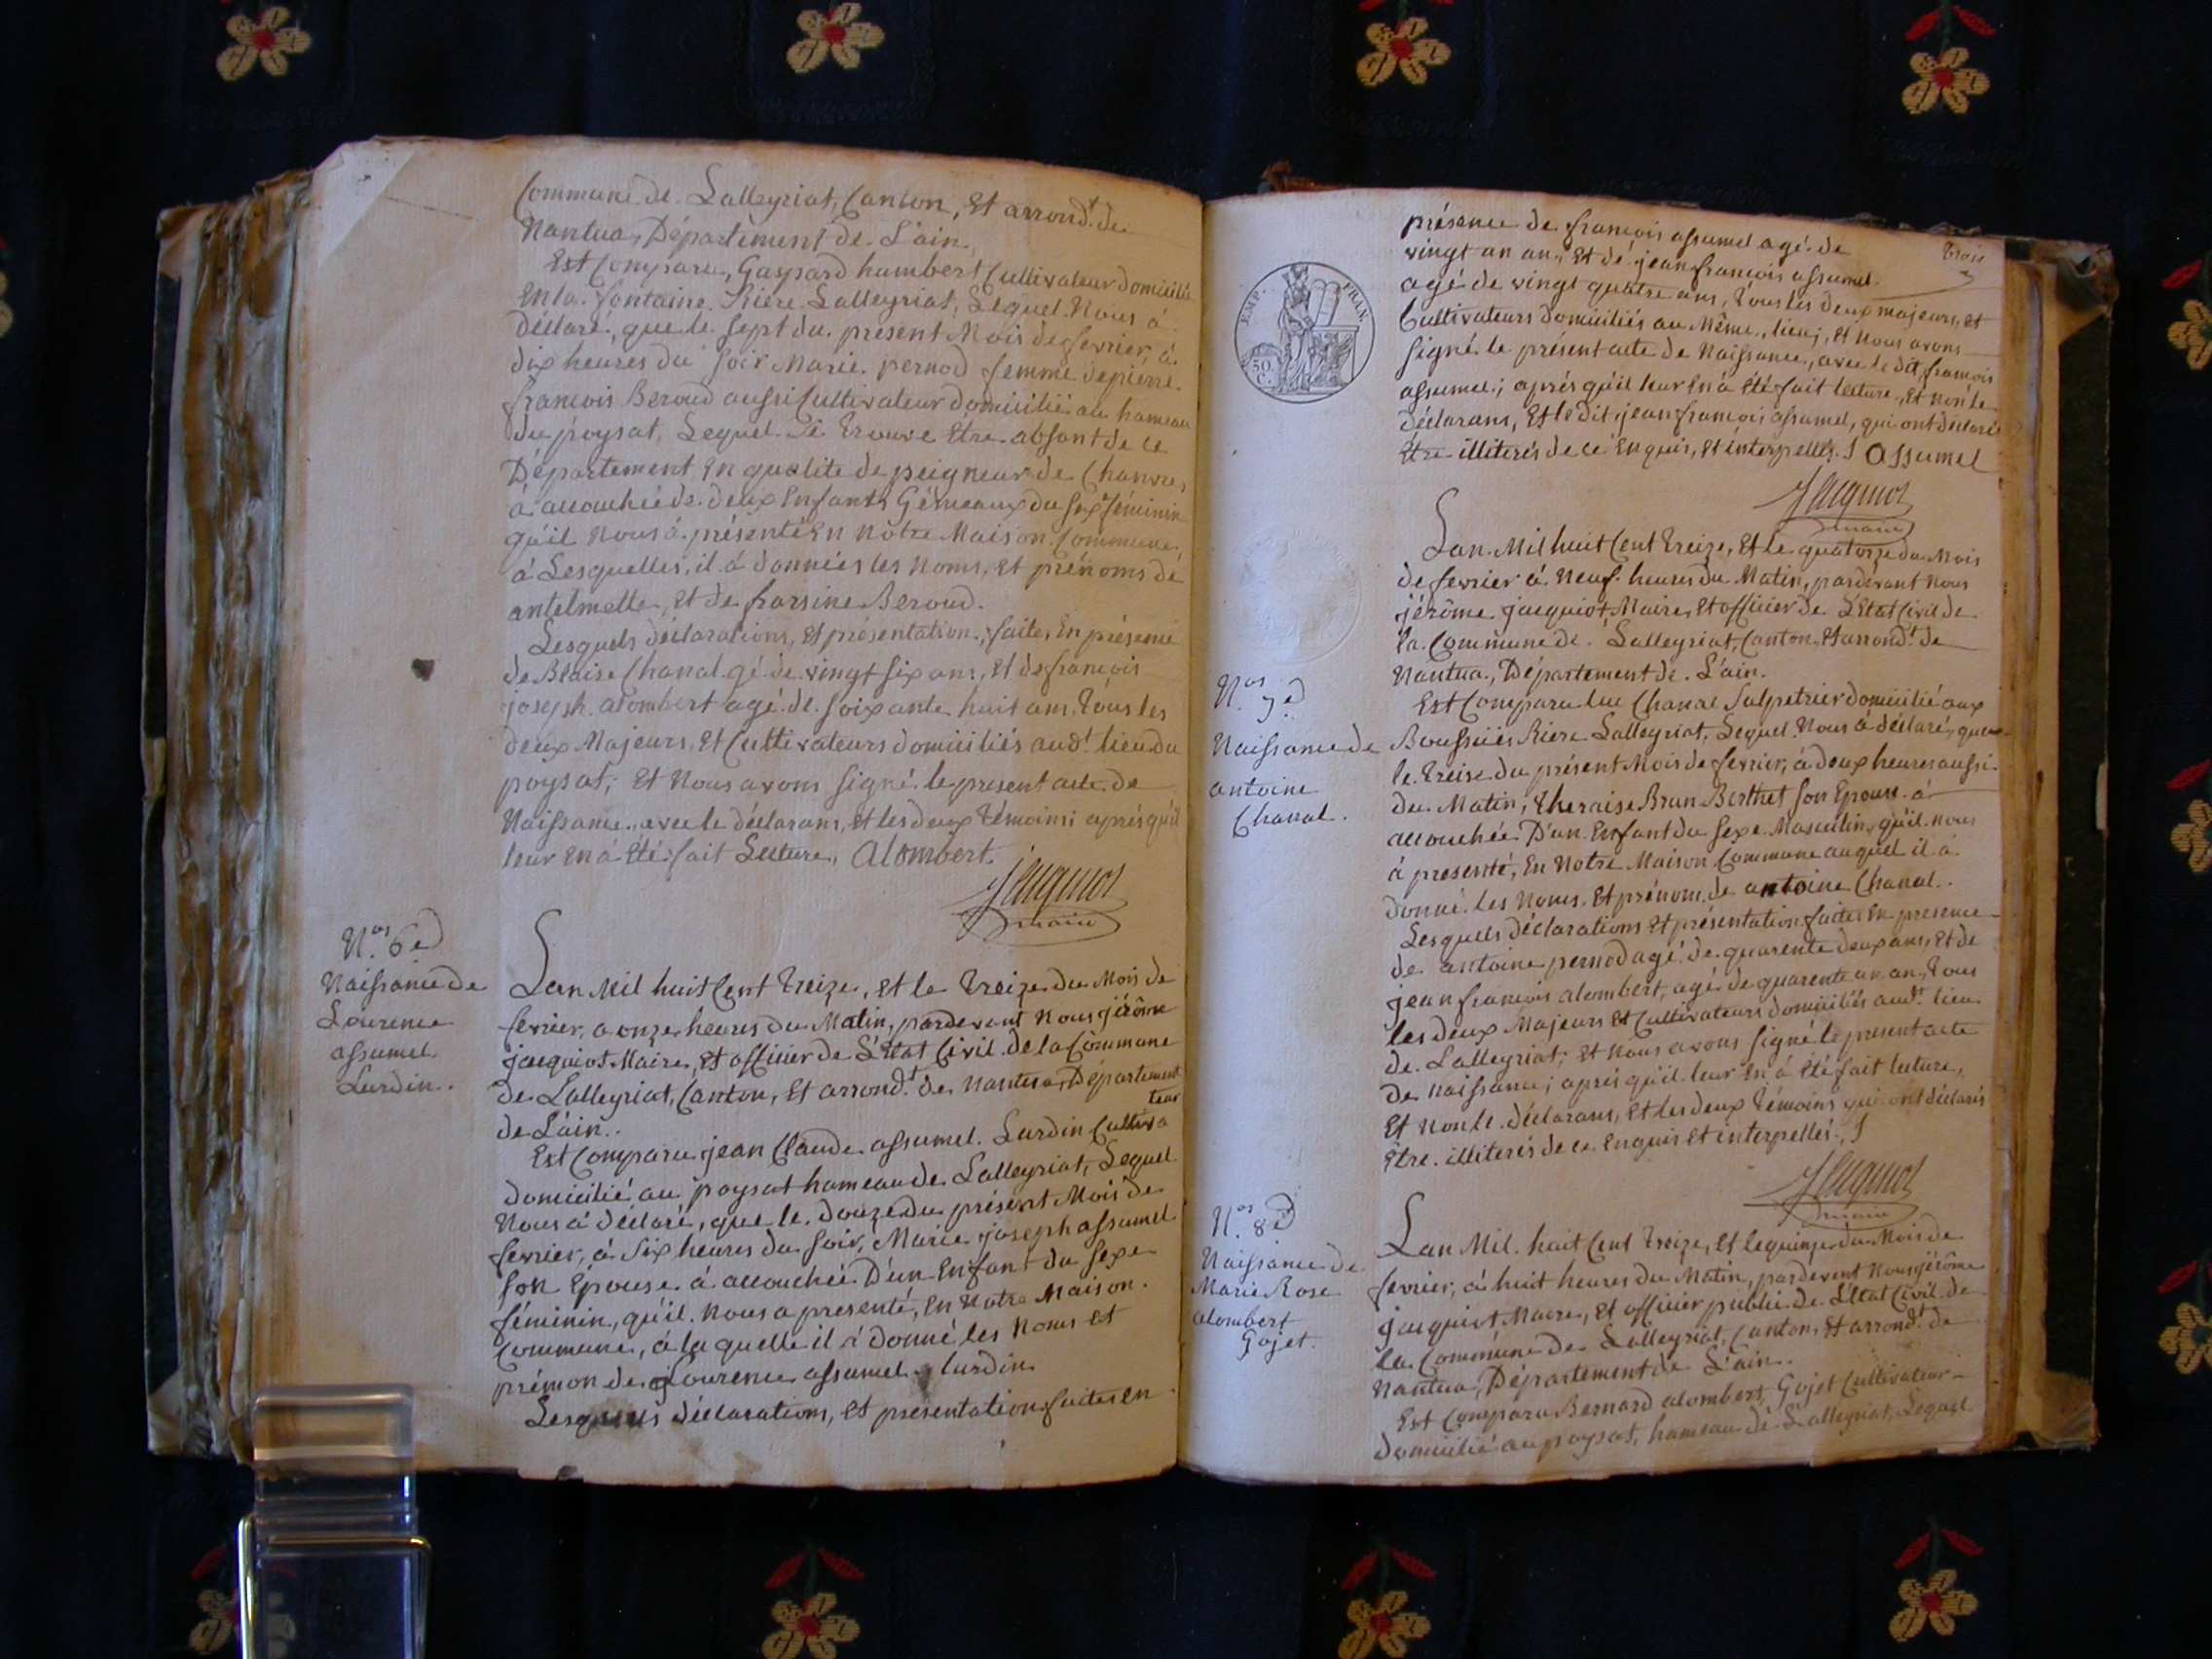 Commune de Lalleyriat, Canton, Et arrond.t de
Nantua, Département de L'ain.
Est Comparu, Gaspard humbert Cultivateur domicilié
En la fontaine Riére Lalleyriat, Lequel Nous á
déclaré, que le Sept du présent Mois de fevrier, á
dix heures du Soir Marie pernod femme de piérre
françois Beroud aussi Cultivateur domicilié au hameau
du poysat, Lequel Se trouve Etre absant de Ce
Département En qualite de peigneur de Chanvre,
á accouchée de deux Enfants Gémeaux du Sex féminin
qu'il Nous á présenté En Nôtre Maison Commune,
á Lesquelles, il á données les Noms, et prénoms de
antelmette, Et de frarsine Beroud.
Lesquels déclarations, Et présentation, faite, En présence
de Blaise Chanal gé de vingt Six ans, Et de françois
joseph alombert agé de Soixante huit ans, tous les
deux Majeurs, Et Cultivateurs domiciliés aud.t lieu du
poysat; Et Nous avons Signé le present acte de
Naissance, avec le déclarans, Et les deux témoins aprés qu'il
leur En á Eté fait Lecture, Alombert.
Jacquiot
maire
N.os 6.e
Naissance de
Lourence
assumel
Lurdin.
Lan Mil huit Cent treize, Et le treize du Mois de
fevrier, a onze heures du Matin, pardevant Nous jérôme
jacquiot Maire, Et officier de L'Etat Civil de la Commune
de Lalleyriat, Canton, Et arrond.t de Nantua, Département
de L'ain.
teur
Est Comparu jean Claude assumel Lurdin Cultiva
domicilié au poysat hameau de Lalleyriat, Lequel
Nous á déclaré, que le douze du présent Mois de
fevrier, á Six heures du Soir, Marie joseph assumel
Son Epouse á accouchée D'un Enfant du Sexe
féminin, qu'il Nous a presenté, En Notre Maison
Commune, á la quelle il á donné les Noms et
prémon de Lourence assumel lurdin
Lesquels déclarations, Et présentation faites En
présence de françois assumel agé de
trois
vingt un an, Et dé jean françois assumel
agé de vingt quatre ans, tous les deux majeurs, et
Cultivateurs domiciliés au Même lieu, Et Nous avons
Signé le présent acte de Naissance, avec le dit françois
assumel; aprés qu'il leur En á Eté fait lecture, Et non le
déclarans, Et le dit jean françois assumel, qui ont déclaré
Etre illiterés de ce Enquis, Et interpellés. J Assumel
EMP. FRAN.
50
C.
Jacquiot
maire
Lan Mil huit Cent treize, Et le quatorze du Mois
de fevrier á Neuf heures du Matin, pardevant Nous
jérôme jacquiot Maire, Et officier de L'Etat Civil de
la Commune de Lalleyriat, Canton, Et arrond.t de
Nantua, Département de L'ain.
N.os 7.e
Naissance de
antoine
Chanal.
Est Comparu luc Chanal Salpetrier domicilié aux
Boussiies Riere Lalleyriat, Lequel Nous á déclaré, que
le treize du présent Mois de fevrier, á deux heures aussi
du Matin, theraise Brun Berthet Son Epouse á
accouchée D'un Enfant du Sexe Masculin, qu'il nous
á presenté, En Notre Maison Commune auquel il á
donné les Noms Et prénom de antoine Chanal.
Lesquels déclarations Et présentation faites En presence
de antoine pernod agé de quarente deux ans, Et de
jean françois alombert, agé de quarente un an, tous
les deux Majeurs Et Cultivateurs domiciliés aud.t lieu
de Lalleyriat; Et Nous avons Signé le present acte
de Naissance; aprés qu'il leur En á Eté fait lecture,
Et Non le déclarans, Et les deux témoins qui ont déclarés
Etre illiterés de ce Enquis Et interpellés. J
Jacquiot
maire
N.os 8.e
Naissance de
Marie Rose
alombert
Gojet.
Lan Mil huit Cent treize, Et le quinze du Mois de
fevrier, á huit heures du Matin, pardevant Nous jérôme
jacquiot Maire, Et officier public de L'Etat Civil de
la Commune de Lalleyriat, Canton, Et arrond.t de
Nantua, Département de L'ain.
Est Comparu Bernard alombert Gojet Cultivateur
domicilié au poysat, hameau de Lalleyriat, Lequel